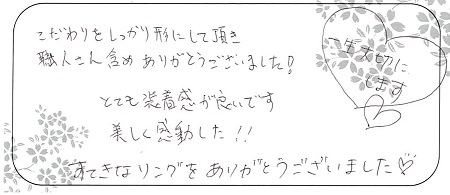 こだわりをしっかり形にして頂き
職人さん含めありがとうございました!
とても装着感が良いです
美しく感動した!!
すてきなリングをありがとうございました♡
一生大切に
します